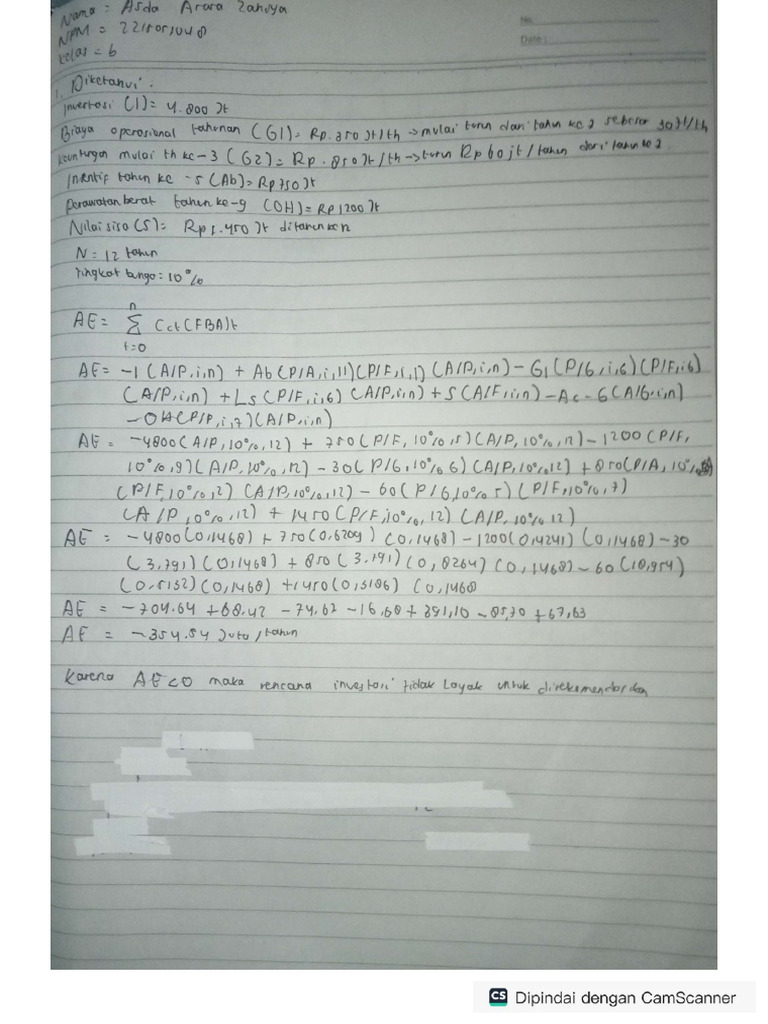 Nama : Asda Arara Zahvya
NPM =
Kelas = 6
No.
Date :
1. Diketahui :
Investasi (I) = 4.800 Jt
Biaya operasional tahunan (G1) = Rp. 350 Jt/th → mulai turun dari tahun ke 7 sebesar 30 Jt/th
keuntungan mulai th ke-3 (G2) = Rp. 850 Jt/th → turun Rp 60 jt/tahun dari tahun ke 7
Insentif tahun ke -5 (Ab) = Rp 750 Jt
perawatan berat tahun ke-9 (OH) = Rp 1200 Jt
Nilai sisa (S) = Rp 1.450 Jt ditahun ke 12
N = 12 tahun
Tingkat bunga = 10%
n
AE = Σ Cct (FBA)t
t=0
AE = -I (A/P, i, n) + Ab (P/A, i, 11) (P/F, i, 1) (A/P, i, n) - G1 (P/G, i, 6) (P/F, i, 6)
(A/P, i, n) + Ls (P/F, i, 6) (A/P, i, n) + S (A/F, i, n) - Ac - G (A/G, i, n)
- OH (P/F, i, 7) (A/P, i, n)
AE = -4800 (A/P, 10%, 12) + 750 (P/F, 10%, 5) (A/P, 10%, 12) - 1200 (P/F,
10%, 9) (A/P, 10%, 12) - 30 (P/G, 10%, 6) (A/P, 10%, 12) + 850 (P/A, 10%,
(P/F, 10%, 2) (A/P, 10%, 12) - 60 (P/G, 10%, 5) (P/F, 10%, 7)
(A/P, 10%, 12) + 1450 (P/F, 10%, 12) (A/P, 10%, 12)
AE = -4800 (0,1468) + 750 (0,6209) (0,1468) - 1200 (0,4241) (0,1468) - 30
(3.791) (0,1468) + 850 (3.791) (0,8264) (0,1468) - 60 (10,954)
(0,5132) (0,1468) + 1450 (0,3186) (0,1468
AE = -704.64 + 68.42 - 74.62 - 16,68 + 391,10 - 85,70 + 67,63
AE = -354.54 Juta/tahun
Karena AE<0 maka rencana investasi tidak layak untuk direkomendasikan
CS Dipindai dengan CamScanner